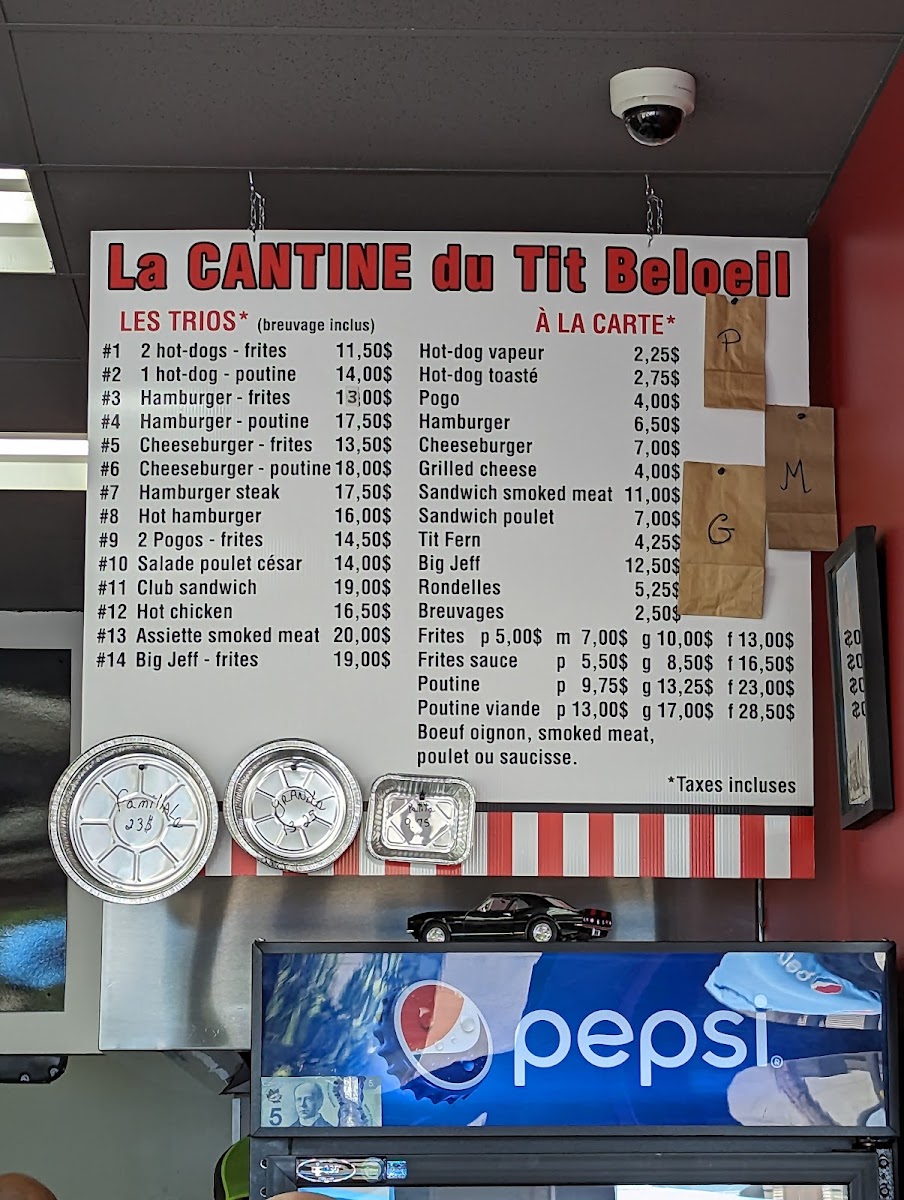 La CANTINE du Tit Beloeil
LES TRIOS* (breuvage inclus)
#1 2 hot-dogs - frites 11,50$
#2 1 hot-dog - poutine 14,00$
#3 Hamburger - frites 13,00$
#4 Hamburger - poutine 17,50$
#5 Cheeseburger - frites 13,50$
#6 Cheeseburger - poutine 18,00$
#7 Hamburger steak 17,50$
#8 Hot hamburger 16,00$
#9 2 Pogos - frites 14,50$
#10 Salade poulet césar 14,00$
#11 Club sandwich 19,00$
#12 Hot chicken 16,50$
#13 Assiette smoked meat 20,00$
#14 Big Jeff - frites 19,00$
À LA CARTE*
Hot-dog vapeur 2,25$
Hot-dog toasté 2,75$
Pogo 4,00$
Hamburger 6,50$
Cheeseburger 7,00$
Grilled cheese 4,00$
Sandwich smoked meat 11,00$
Sandwich poulet 7,00$
Tit Fern 4,25$
Big Jeff 12,50$
Rondelles 5,25$
Breuvages 2,50$
Frites p 5,00$ m 7,00$ g 10,00$ f 13,00$
Frites sauce p 5,50$ g 8,50$ f 16,50$
Poutine p 9,75$ g 13,25$ f 23,00$
Poutine viande p 13,00$ g 17,00$ f 28,50$
Boeuf oignon, smoked meat,
poulet ou saucisse.
*Taxes incluses
P
M
G
Familiale
23$
GRANDE
13.25
9.75
pepsi
5